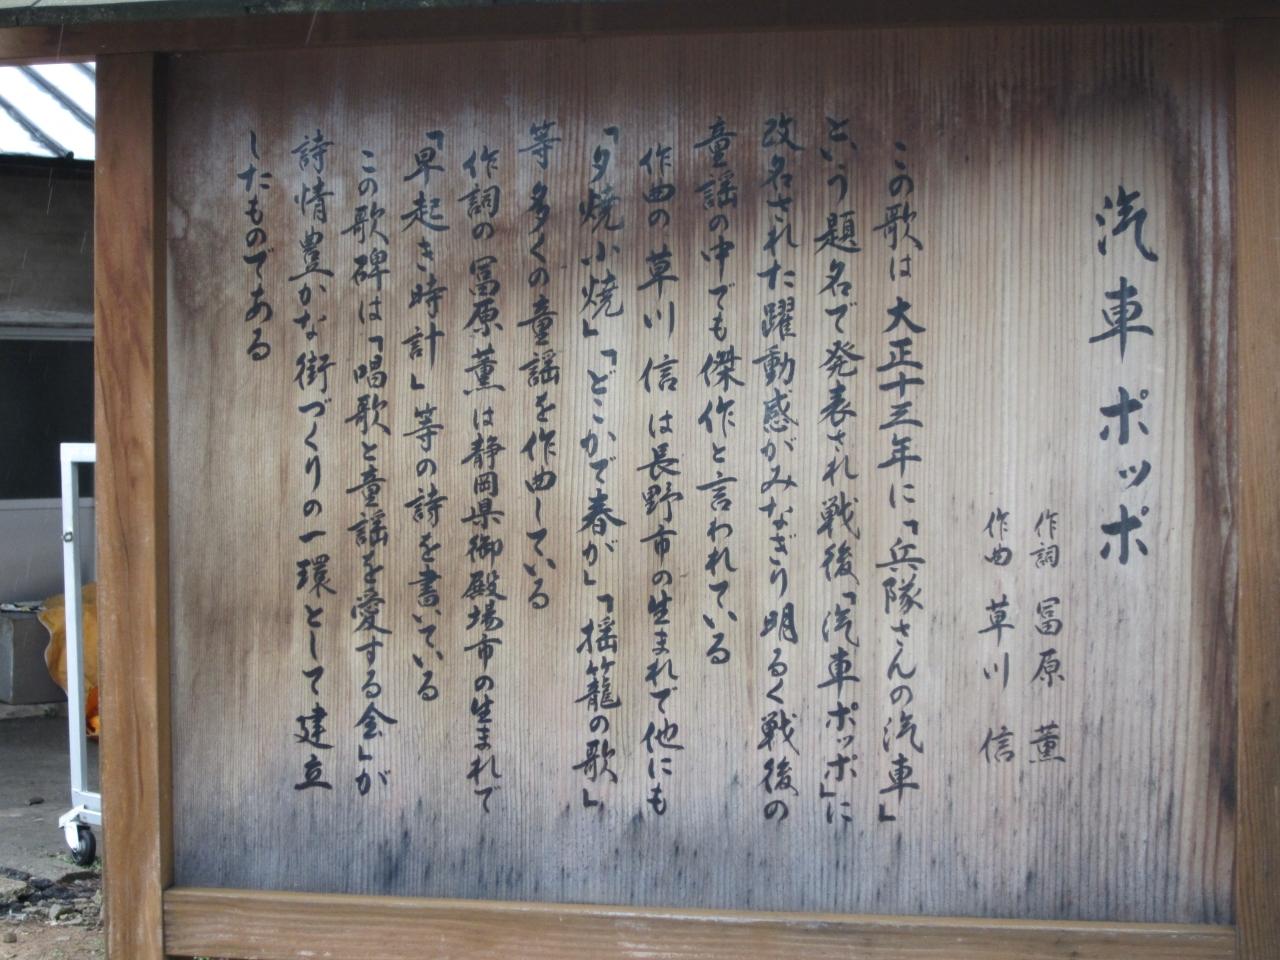 汽車ポッポ
作詞 冨原 薫
作曲 草川 信
この歌は大正十三年に「兵隊さんの汽車」
という題名で発表され戦後「汽車ポッポ」に
改名された躍動感がみなぎり明るく戦後の
童謡の中でも傑作と言われている
作曲の草川信は長野市の生まれで他にも
「夕焼小焼」「どこかで春が」「揺籠の歌」
等多くの童謡を作曲している
作詞の冨原薫は静岡県御殿場市の生まれで
「早起き時計」等の詩を書いている
この歌碑は「唱歌と童謡を愛する会」が
詩情豊かな街づくりの一環として建立
したものである